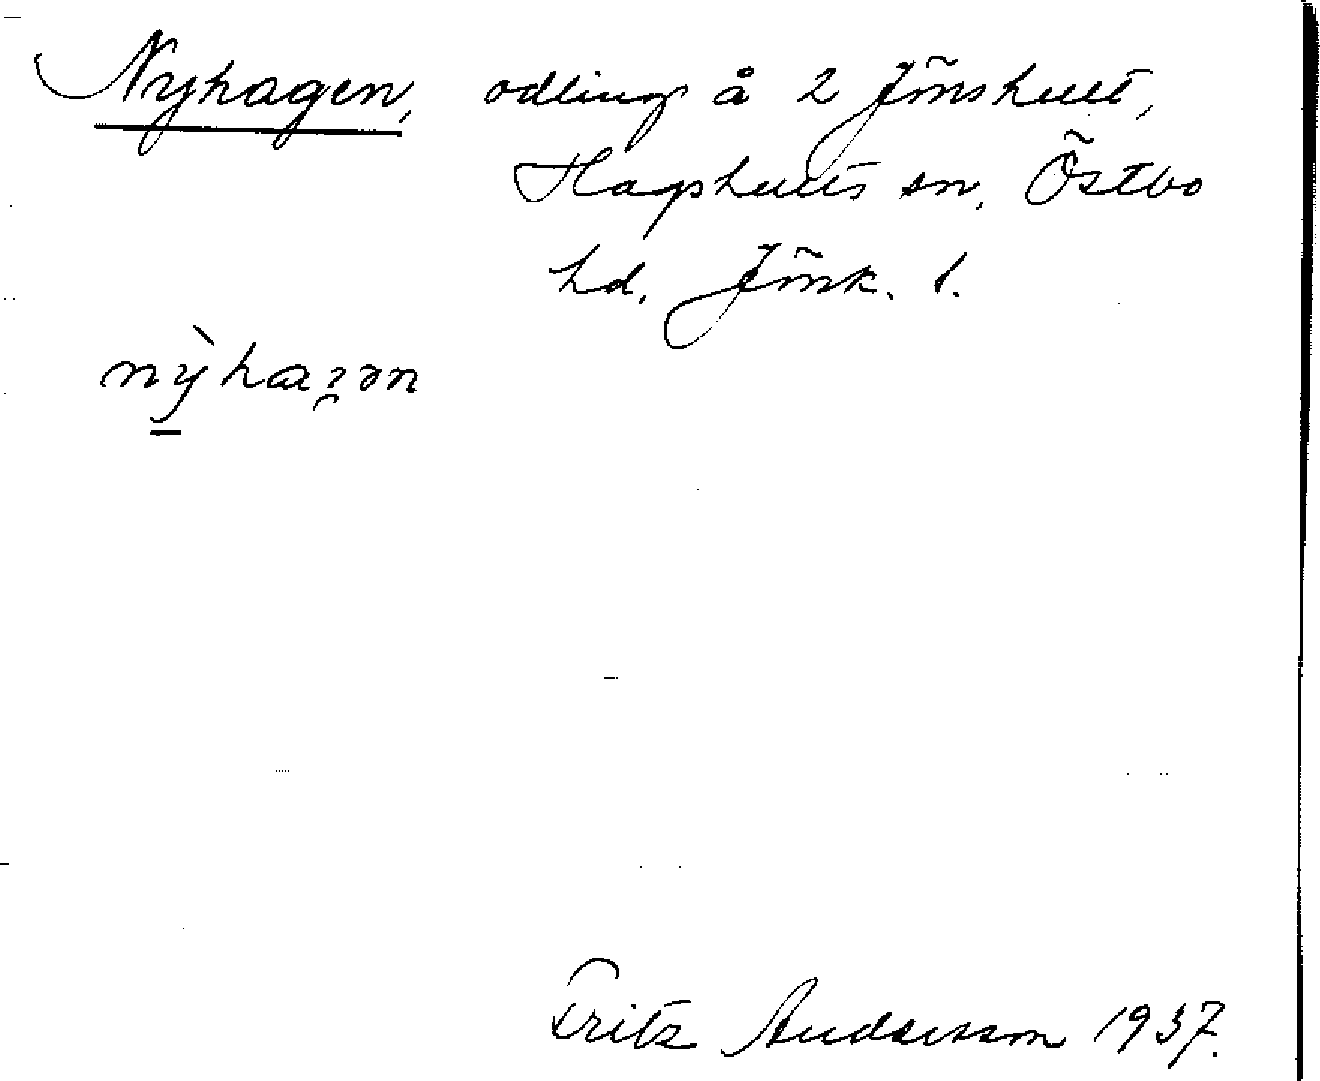 Nyhagen, odling å 2 Jönshult,
Hagshults sn, Östbo
hd, Jönk. l.
nỳhaʒən
Fritz Andersson 1937.